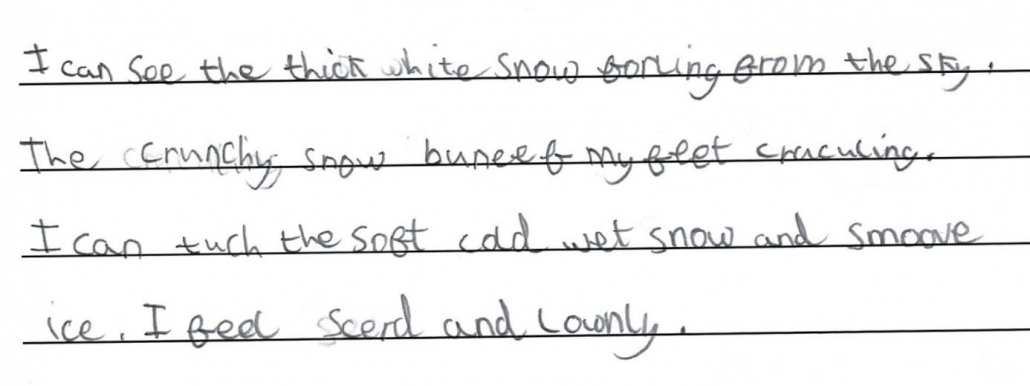 I can see the thick white snow forling from the sky.
The crunchy snow buneef my feet craculing.
I can tuch the soft cold wet snow and smoove
ice. I feel scerd and lownly.